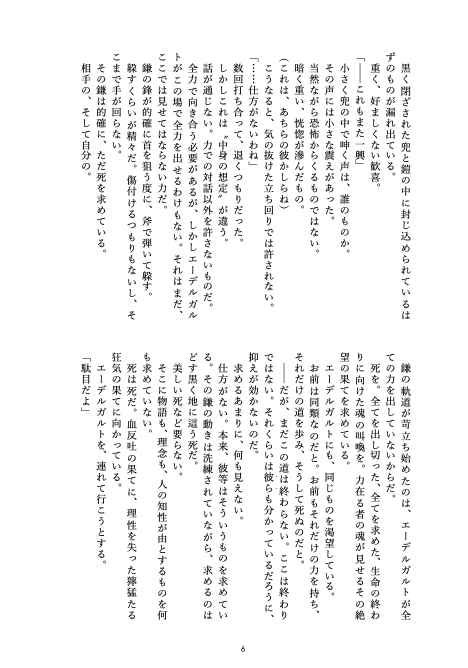 黒く閉ざされた兜と鎧の中に封じ込められているは
ずのものが漏れ出ている。
重く、好ましくない歓喜。
「――これもまた一興」
小さく兜の中で呟く声は、誰のものか。
その声には小さな震えがあった。
当然ながら恐怖からくるものではない。
暗く重い、恍惚が滲んだもの。
(これは、あちらの彼かしらね)
こうなると、気の抜けた立ち回りでは許されない。
「……仕方がないわね」
数回打ち合って、退くつもりだった。
しかしこれは〝中身の想定〟が違う。
話が通じない。力での対話以外を許さないものだ。
全力で向き合う必要があるが、しかしエーデルガル
トがこの場で全力を出せるわけもない。それはまだ、
ここでは見せてはならない力だ。
鎌の鋒が的確に首を狙う度に、斧で弾いて躱す。
躱すくらいが精々だ。傷付けるつもりもないし、そ
こまで手が回らない。
その鎌は的確に、ただ死を求めている。
相手の、そして自分の。
鎌の軌道が苛立ち始めたのは、エーデルガルトが全
ての力を出していないからだ。
死を。全てを出し切った、全てを求めた、生命の終わ
りに向けた魂の叫喚を。力在る者の魂が見せるその絶
望の果てを求めている。
エーデルガルトにも、同じものを渇望している。
お前は同類なのだと。お前もそれだけの力を持ち、
それだけの道を歩み、そうして死ぬのだと。
――だが、まだこの道は終わらない。ここは終わり
ではない。それくらいは彼らも分かっているだろうに、
抑えが効かないのだ。
求めるあまりに、何も見えない。
仕方がない。本来、彼等はそういうものを求めてい
る。その鎌の動きは洗練されていながら、求めるのは
どす黒く地に這う死だ。
美しい死など要らない。
そこに物語も、理念も、人の知性が由とするものを何
も求めていない。
死は死だ。血反吐の果てに、理性を失った獰猛たる
狂気の果てに向かっている。
エーデルガルトを、連れて行こうとする。
「駄目だよ」
6